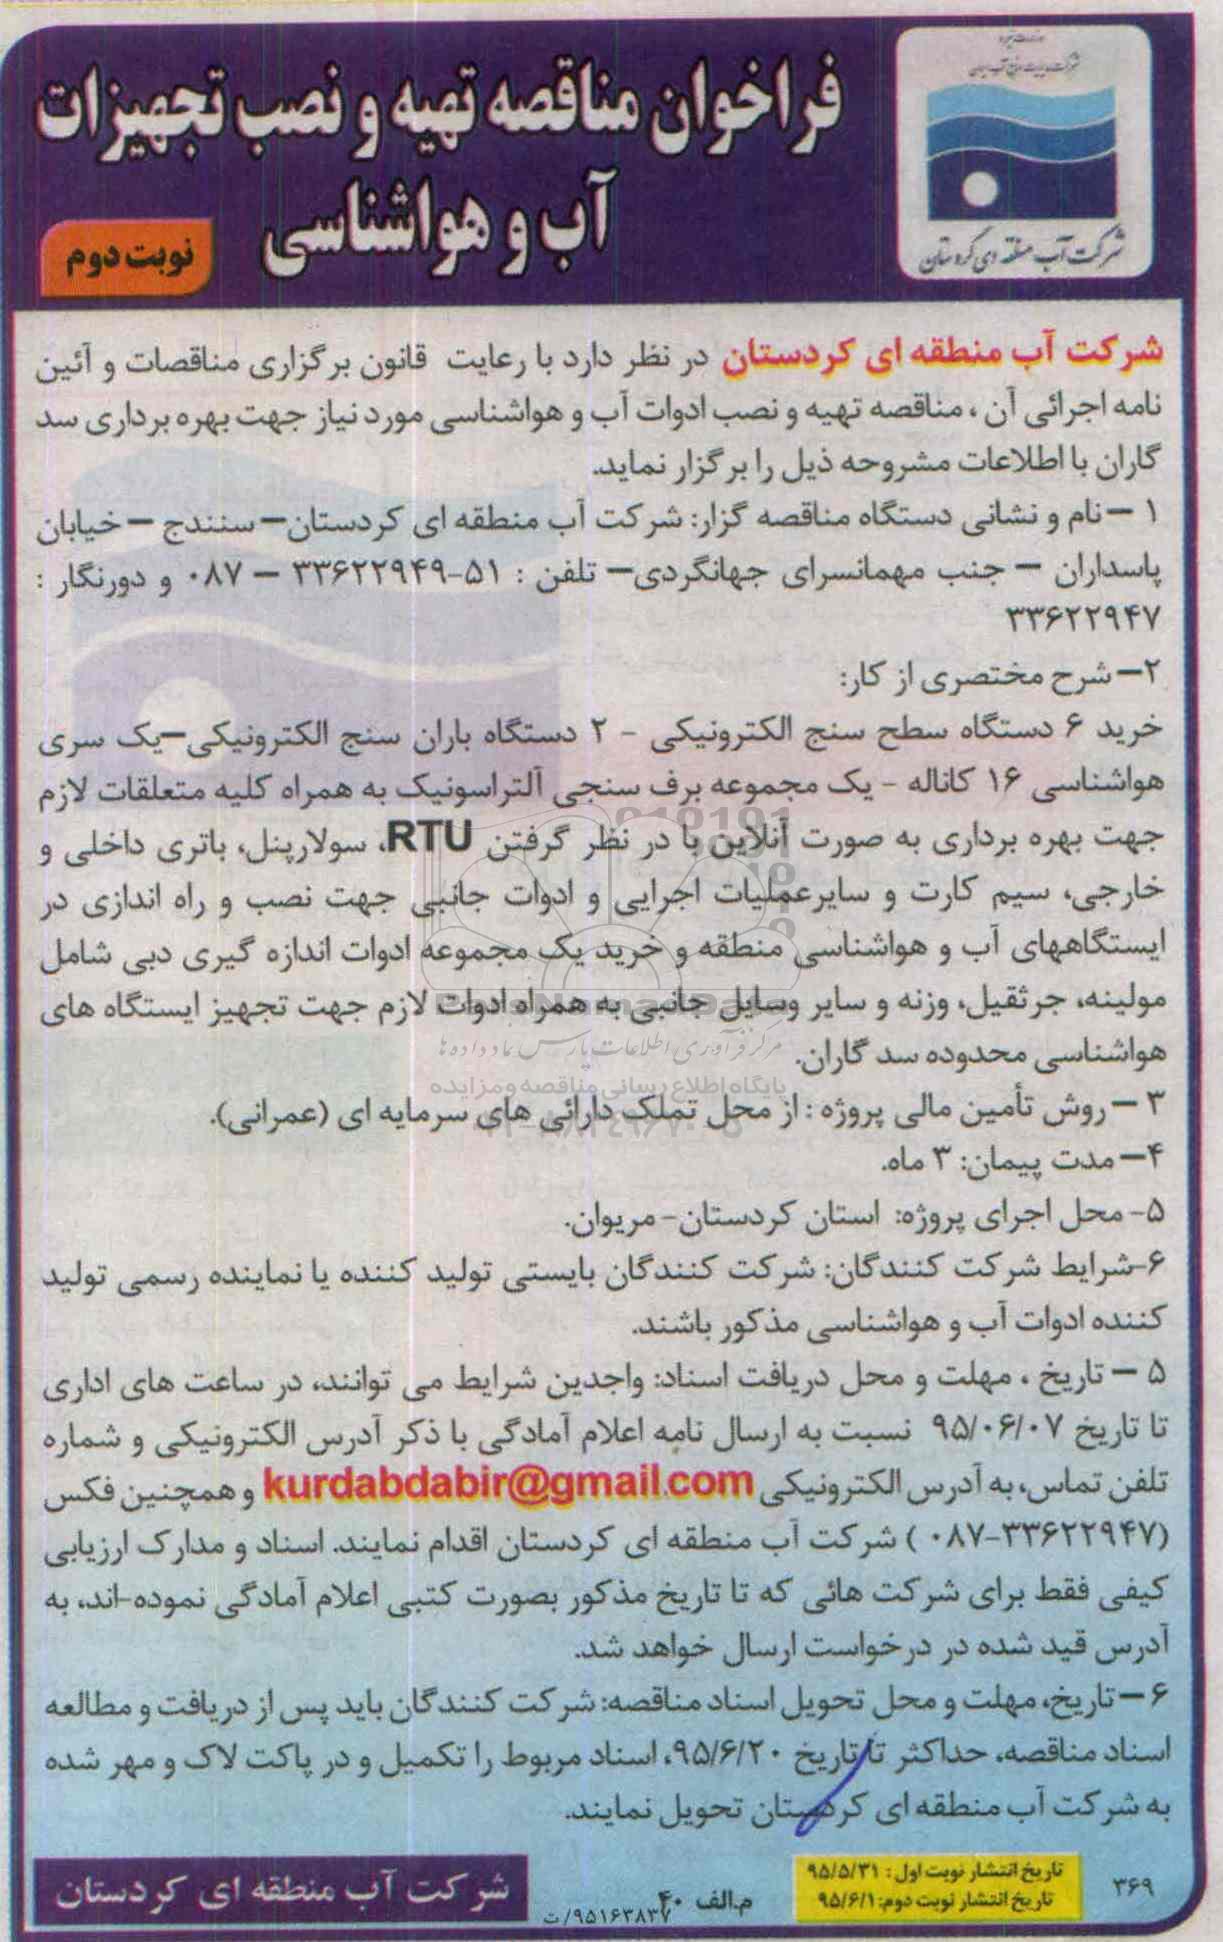 شرکت آب منطقه ای کردستان
فراخوان مناقصه تهیه و نصب تجهیزات
آب و هواشناسی
نوبت دوم
شرکت آب منطقه ای کردستان در نظر دارد با رعایت قانون برگزاری مناقصات و آئین
نامه اجرائی آن ، مناقصه تهیه و نصب ادوات آب و هواشناسی مورد نیاز جهت بهره برداری سد
گاران با اطلاعات مشروحه ذیل را برگزار نماید.
۱ –نام و نشانی دستگاه مناقصه گزار: شرکت آب منطقه ای کردستان– سنندج –خیابان
پاسداران – جنب مهمانسرای جهانگردی– تلفن : ۵۱-۳۳۶۲۲۹۴۹ – ۰۸۷ و دورنگار :
۳۳۶۲۲۹۴۷
۲– شرح مختصری از کار:
خرید ۶ دستگاه سطح سنج الکترونیکی - ۲ دستگاه باران سنج الکترونیکی–یک سری
هواشناسی ۱۶ کاناله - یک مجموعه برف سنجی آلتراسونیک به همراه کلیه متعلقات لازم
جهت بهره برداری به صورت آنلاین با در نظر گرفتن RTU، سولارپنل، باتری داخلی و
خارجی، سیم کارت و سایرعملیات اجرایی و ادوات جانبی جهت نصب و راه اندازی در
ایستگاههای آب و هواشناسی منطقه و خرید یک مجموعه ادوات اندازه گیری دبی شامل
مولینه، جرثقیل، وزنه و سایر وسایل جانبی به همراه ادوات لازم جهت تجهیز ایستگاه های
هواشناسی محدوده سد گاران.
مرکز فرآوری اطلاعات پارس نماد داده ها
پایگاه اطلاع رسانی مناقصه و مزایده
۳ – روش تأمین مالی پروژه : از محل تملک دارائی های سرمایه ای (عمرانی).
۴– مدت پیمان: ۳ ماه.
۵- محل اجرای پروژه: استان کردستان- مریوان.
۶-شرایط شرکت کنندگان: شرکت کنندگان بایستی تولید کننده یا نماینده رسمی تولید
کننده ادوات آب و هواشناسی مذکور باشند.
۵ – تاریخ ، مهلت و محل دریافت اسناد: واجدین شرایط می توانند، در ساعت های اداری
تا تاریخ ۹۵/۰۶/۰۷ نسبت به ارسال نامه اعلام آمادگی با ذکر آدرس الکترونیکی و شماره
تلفن تماس، به آدرس الکترونیکی kurdabdabir@gmail.com و همچنین فکس
(۰۸۷-۳۳۶۲۲۹۴۷ ) شرکت آب منطقه ای کردستان اقدام نمایند. اسناد و مدارک ارزیابی
کیفی فقط برای شرکت هائی که تا تاریخ مذکور بصورت کتبی اعلام آمادگی نموده-اند، به
آدرس قید شده در درخواست ارسال خواهد شد.
۶ – تاریخ، مهلت و محل تحویل اسناد مناقصه: شرکت کنندگان باید پس از دریافت و مطالعه
اسناد مناقصه، حداکثر تا تاریخ ۹۵/۶/۲۰، اسناد مربوط را تکمیل و در پاکت لاک و مهر شده
به شرکت آب منطقه ای کردستان تحویل نمایند.
۳۶۹
تاریخ انتشار نوبت اول : ۹۵/۵/۳۱
تاریخ انتشار نوبت دوم: ۹۵/۶/۱
م.الف ۴۰
۹۵۱۶۳۸۳۷/ت
شرکت آب منطقه ای کردستان